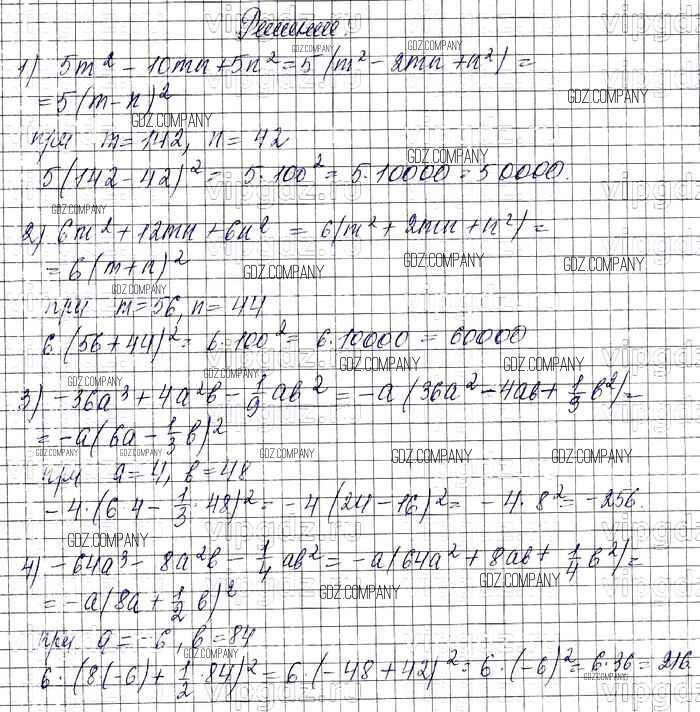 Решение:
1) 5m² - 10mn + 5n² = 5(m² - 2mn + n²) =
= 5(m - n)²
при m = 142, n = 42
5(142 - 42)² = 5·100² = 5·10000 = 50000.
2) 6m² + 12mn + 6n² = 6(m² + 2mn + n²) =
= 6(m + n)²
при m = 56, n = 44
6·(56 + 44)² = 6·100² = 6·10000 = 60000
3) -36a³ + 4a²b - 1/9 ab² = -a(36a² - 4ab + 1/9 b²) =
= -a(6a - 1/3 b)²
при a = 4, b = 48
-4·(6·4 - 1/3·48)² = -4(24 - 16)² = -4·8² = -256.
4) -64a³ - 8a²b - 1/4 ab² = -a(64a² + 8ab + 1/4 b²) =
= -a(8a + 1/2 b)²
при a = -6, b = 84
6·(8(-6) + 1/2·84)² = 6·(-48 + 42)² = 6·(-6)² = 6·36 = 216
GDZ.COMPANY
vipgdz.ru